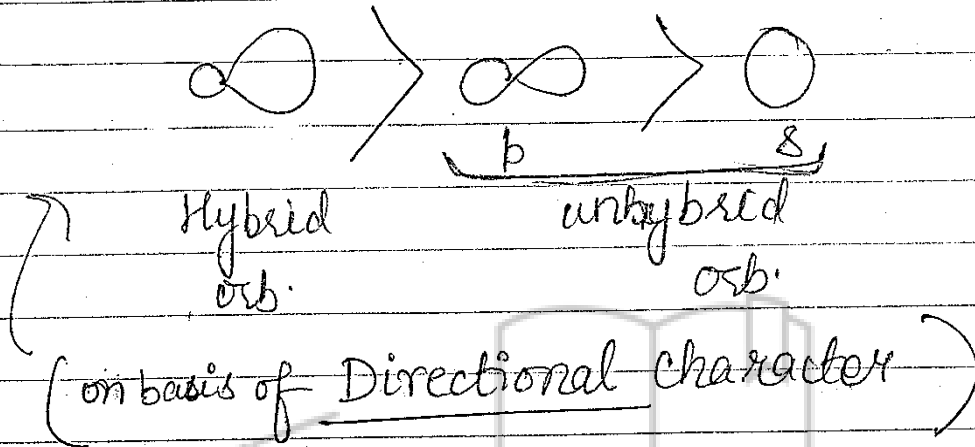 > >
p s
Hybrid unhybrid
orb. orb.
(on basis of Directional character)